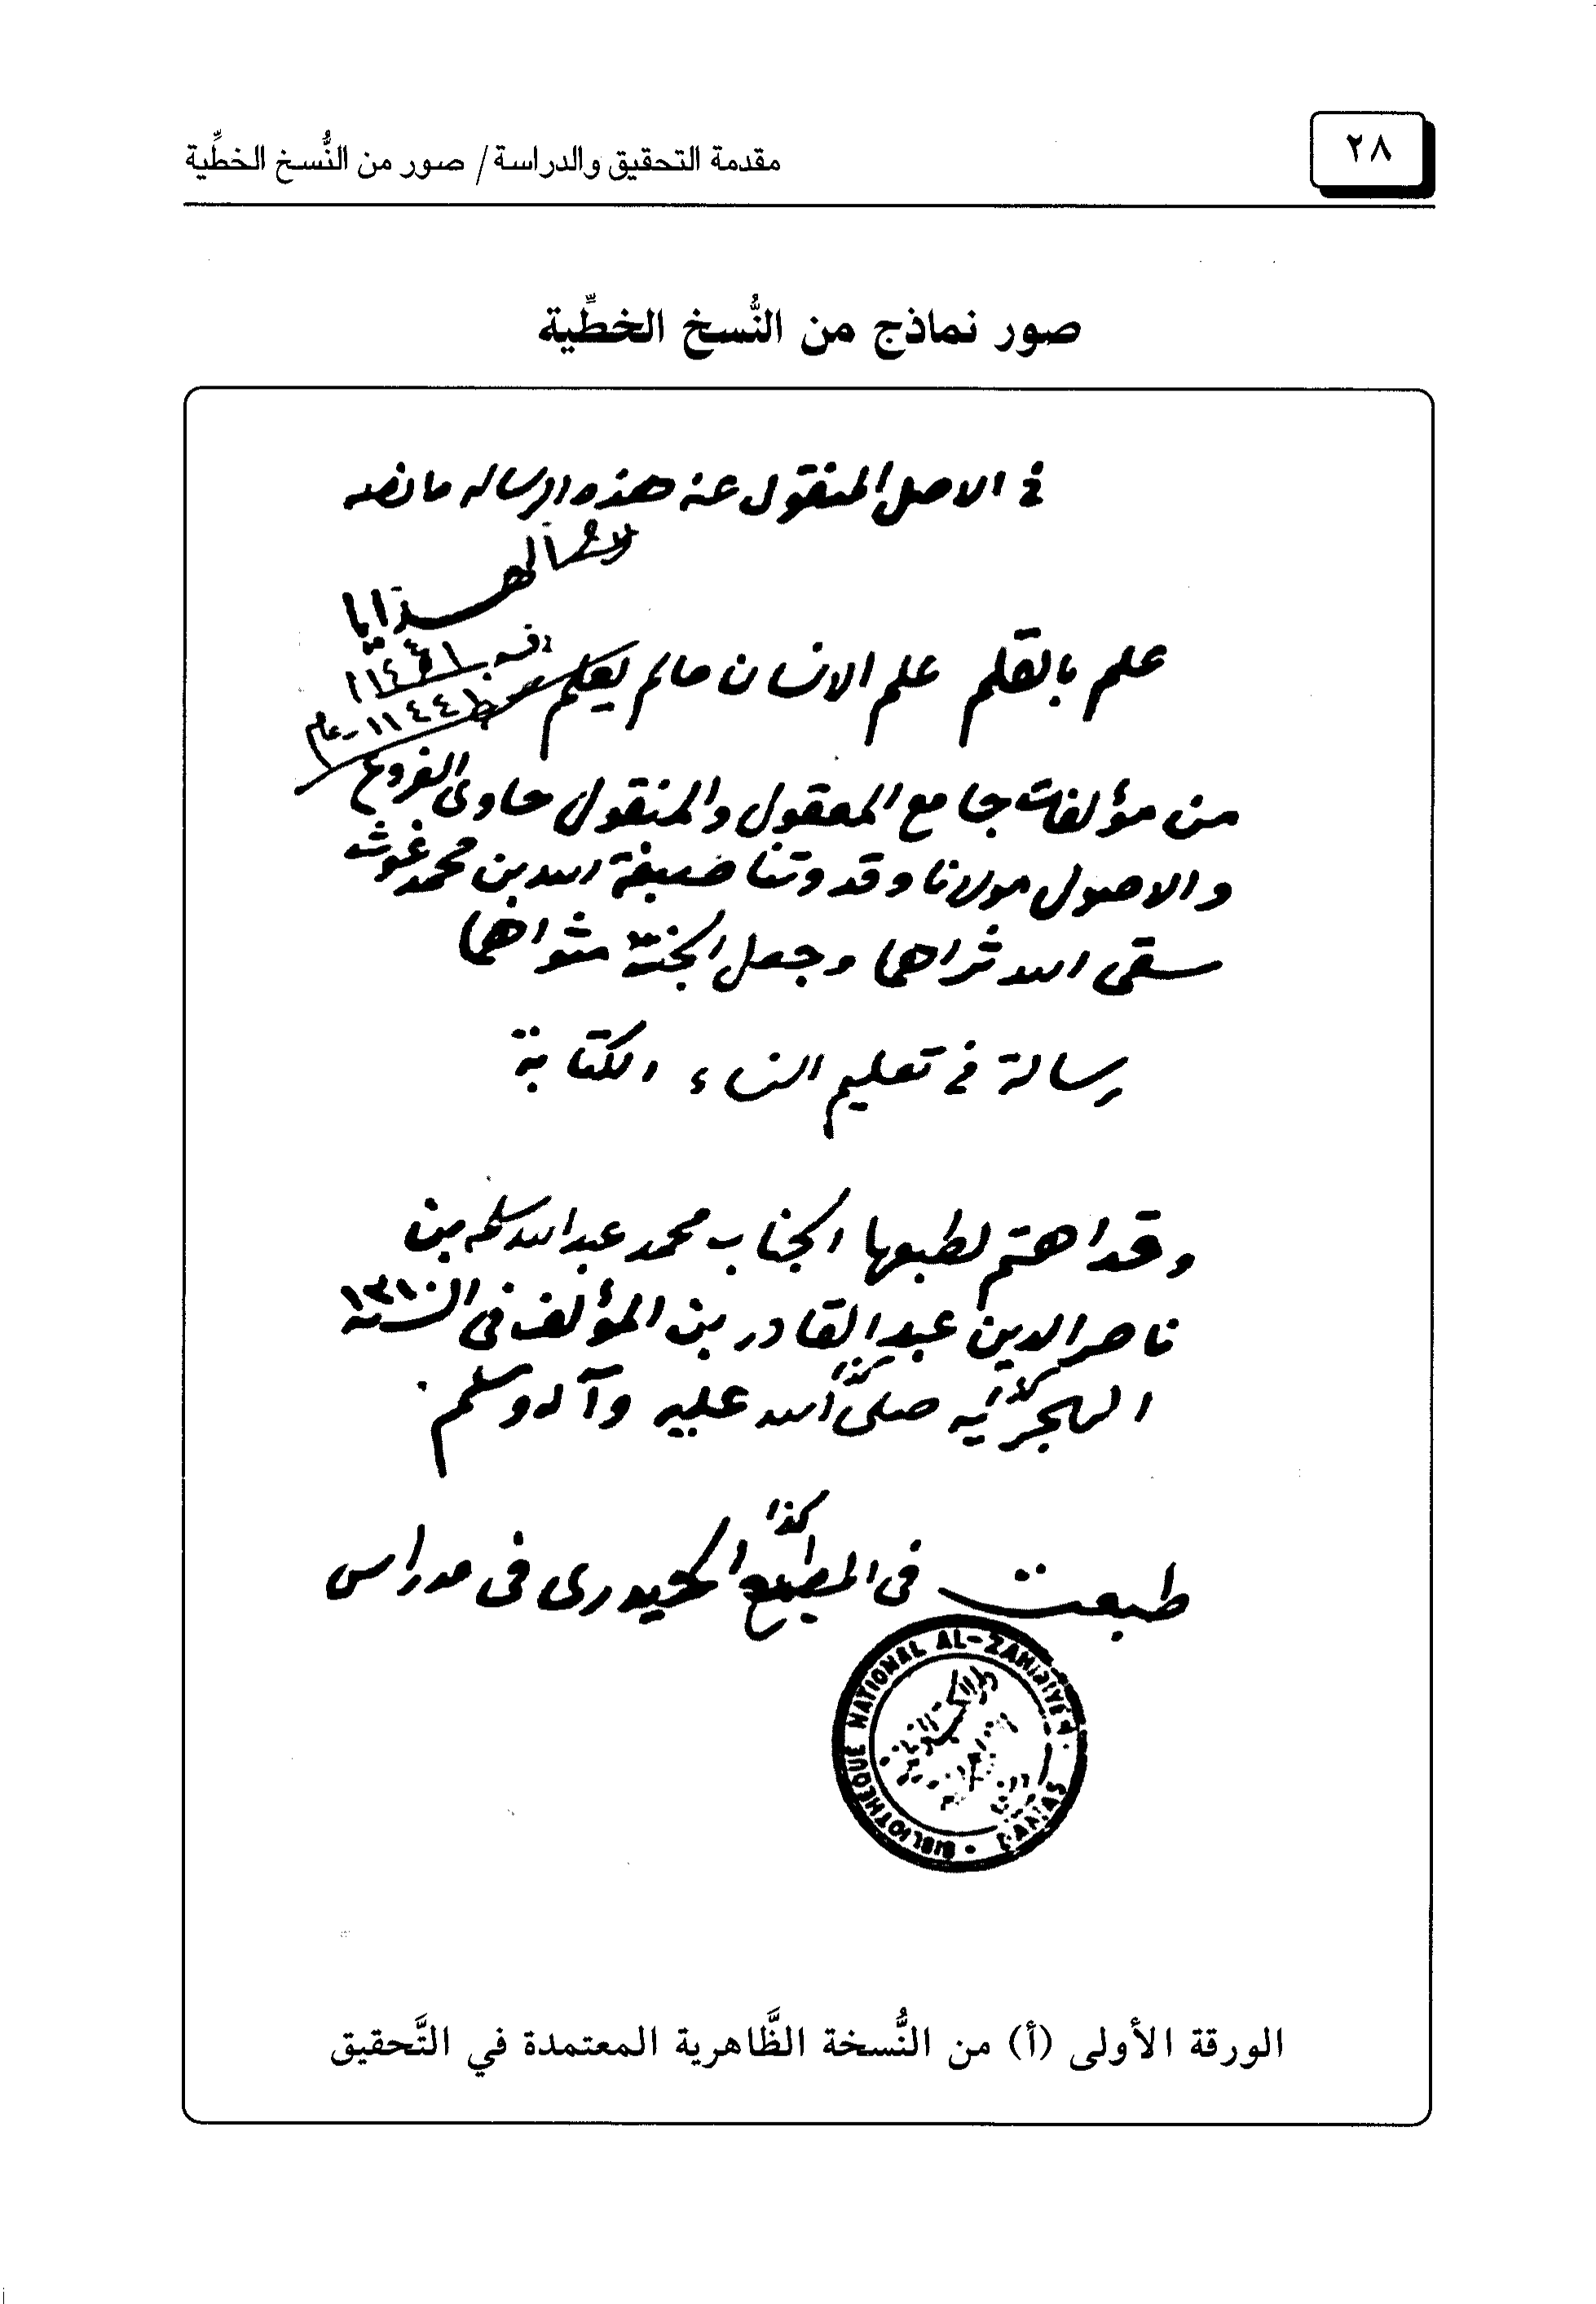 ٢٨
مقدمة التحقيق والدراسة / صور من النُّسخ الخطِّية
صور نماذج من النُّسخ الخطِّية
في الاصل المنقول عنه هذه الرساله ما نصه
علم بالقلم علم الانسان ما لم يعلم
من مؤلفات جامع المعقول والمنقول حاوى الفروع
والاصول مولانا وقدوتنا صبغة الله بن محمد غوث
سقى الله ثراهما وجعل الجنة مثواهما
رسالة في تعليم النساء الكتابة
وقد اهتم لطبعها الجناب محمد عبد الله سلمه بن
ناصر الدين عبد القادر بن المؤلف فى السنه ١٣١٠
كذا كذا
الهجرية صلى الله عليه وآله وسلم
كذا
طبعت فى المطبع الحيدرى فى مدراس
BIBLIOTHEQUE NATIONAL AL-ZAHIRIYEH
DAMAS
الورقة الأولى (أ) من النُّسخة الظَّاهرية المعتمدة في التَّحقيق